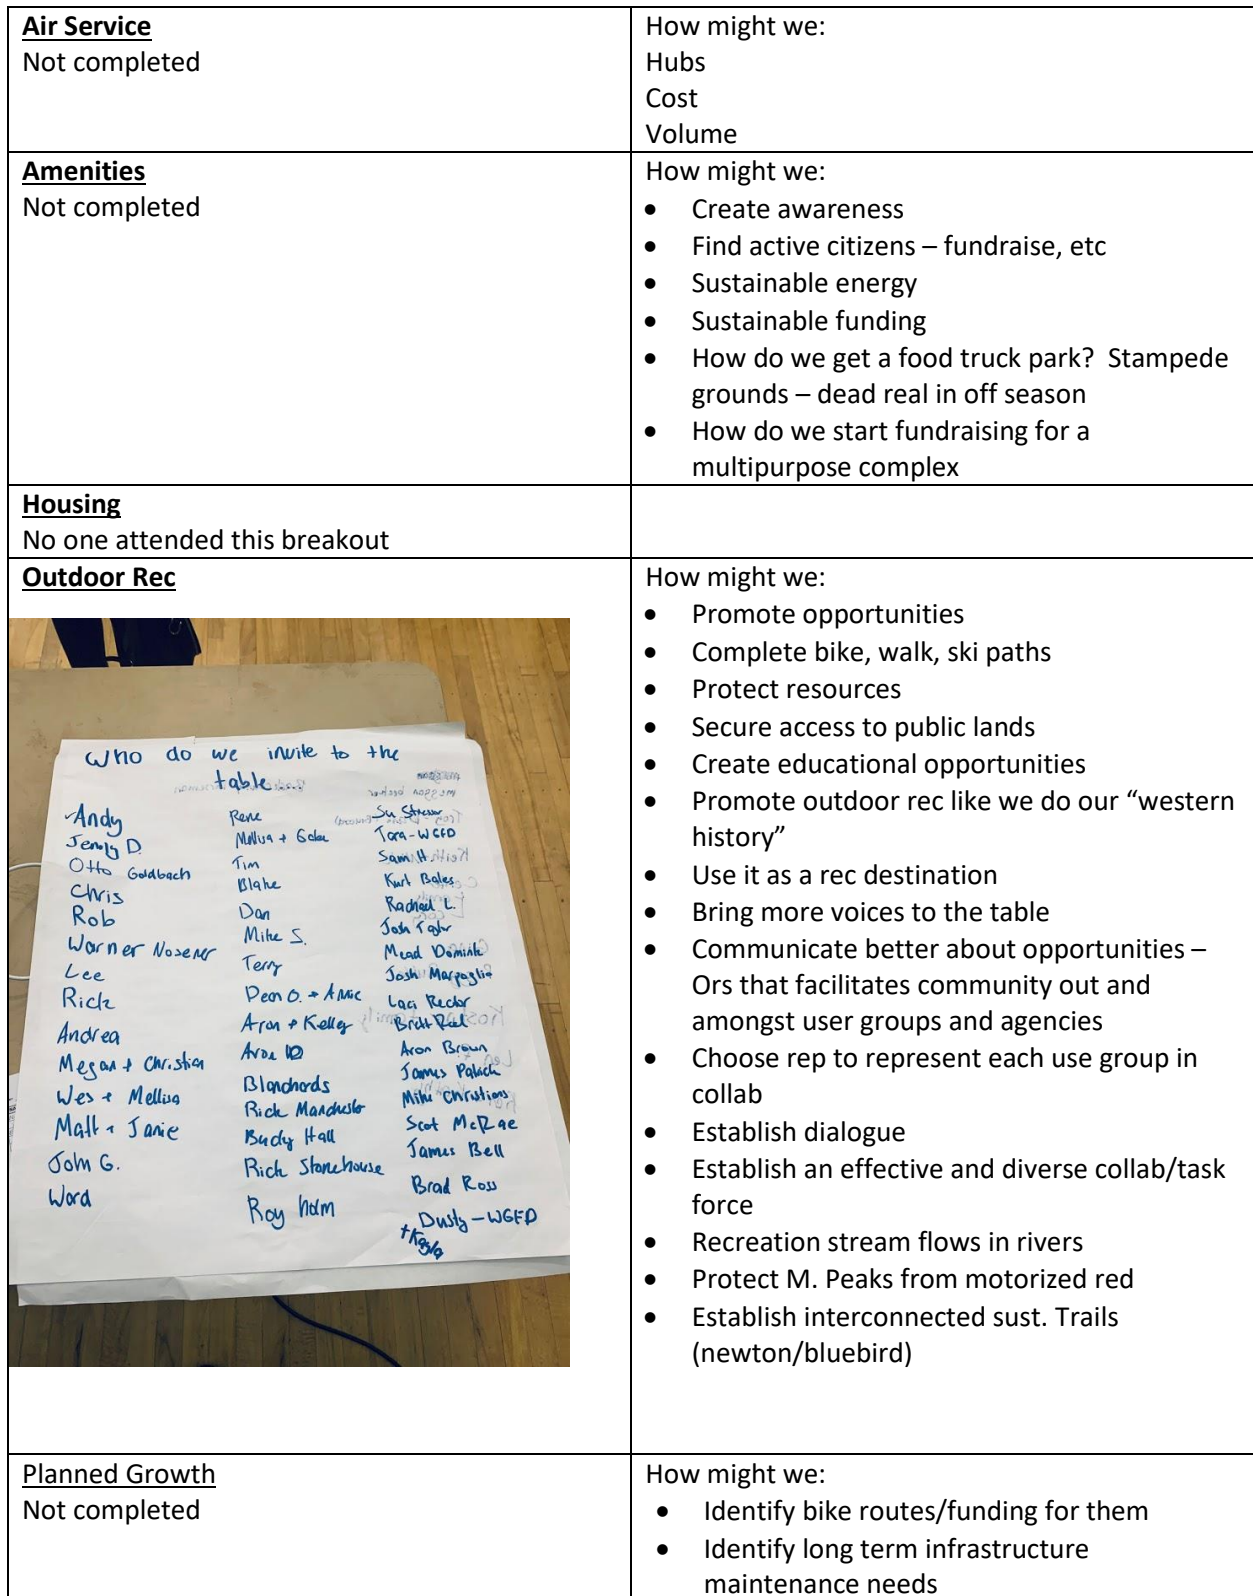 Air Service
Not completed
How might we:
Hubs
Cost
Volume
Amenities
Not completed
How might we:
• Create awareness
• Find active citizens – fundraise, etc
• Sustainable energy
• Sustainable funding
• How do we get a food truck park?  Stampede
grounds – dead real in off season
• How do we start fundraising for a
multipurpose complex
Housing
No one attended this breakout
Outdoor Rec
who do we invite to the
table
Andy
Jenny D.
Otto Goldbach
Chris
Rob
Warner Nosener
Lee
Rick
Andrea
Megan + Christian
Wes + Mellisa
Matt + Janie
John G.
Ward
Rene
Mellisa + Gabe
Tim
Blake
Dan
Mike S.
Terry
Dean O. + Amie
Aron + Kelley
Aron
Blanchards
Rick Manchester
Budy Hall
Rich Stonehouse
Roy holm
Su
Tara - WGFD
Sam H.
Kurt Bales
Rachael L.
Josh Taylor
Mead Dominick
Josh Marpaglia
Laci Rector
Brett
Aron Brown
James
Mike Christians
Scot McRae
James Bell
Brad Ross
Dusty - WGFD
+ Kayla
How might we:
• Promote opportunities
• Complete bike, walk, ski paths
• Protect resources
• Secure access to public lands
• Create educational opportunities
• Promote outdoor rec like we do our “western
history”
• Use it as a rec destination
• Bring more voices to the table
• Communicate better about opportunities –
Ors that facilitates community out and
amongst user groups and agencies
• Choose rep to represent each use group in
collab
• Establish dialogue
• Establish an effective and diverse collab/task
force
• Recreation stream flows in rivers
• Protect M. Peaks from motorized red
• Establish interconnected sust. Trails
(newton/bluebird)
Planned Growth
Not completed
How might we:
• Identify bike routes/funding for them
• Identify long term infrastructure
maintenance needs